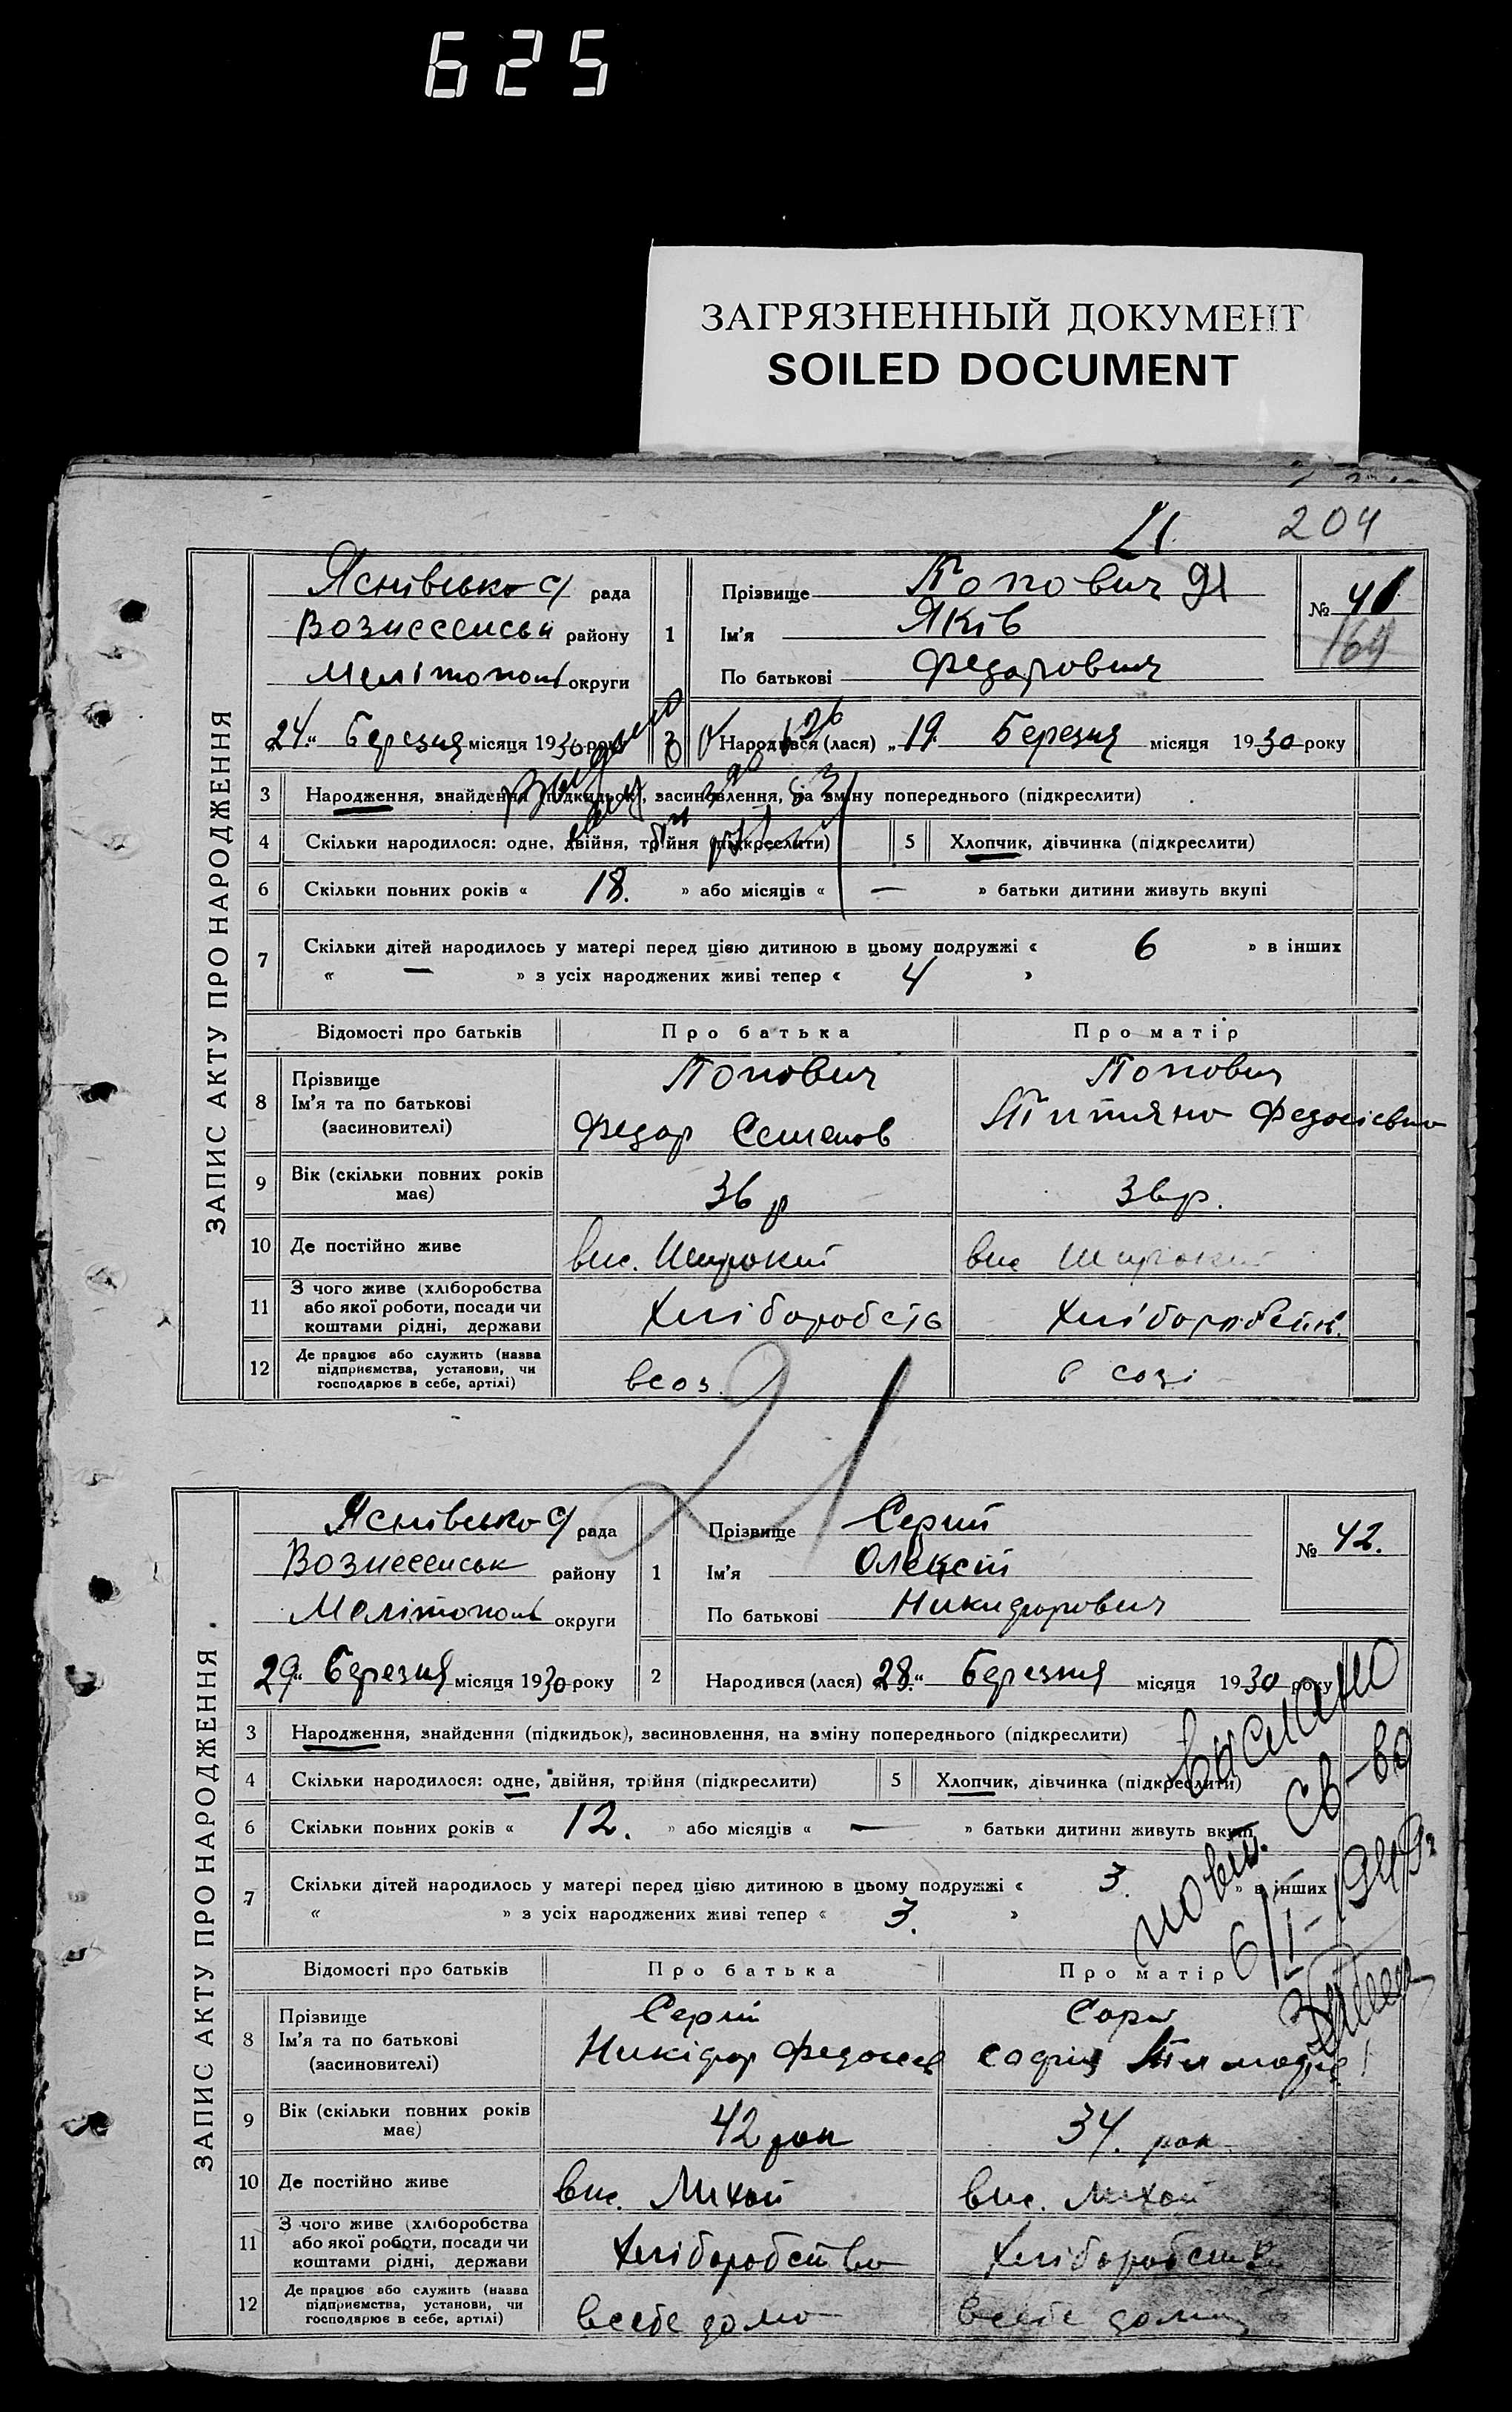 625
ЗАГРЯЗНЕННЫЙ ДОКУМЕНТ
SOILED DOCUMENT
21. 204
ЗАПИС АКТУ ПРО НАРОДЖЕННЯ
Яснівсько с/ рада
Вознесенськ району
Мелітополь округи
„24.“ Березня місяця 1930 року
1 Прізвище Попович
Ім'я Яків
По батькові Федорович
№ 41
164
2 Народився (лася) „19. Березня місяця 1930 року
3 Народження, знайдення (підкидьок), засиновлення, на зміну попереднього (підкреслити)
4 Скільки народилося: одне, двійня, трійня (підкреслити) 5 Хлопчик, дівчинка (підкреслити)
6 Скільки повних років « 18. » або місяців « — » батьки дитини живуть вкупі
7 Скільки дітей народилось у матері перед цією дитиною в цьому подружжі « 6 » в інших
« — » з усіх народжених живі тепер « 4 »
Відомості про батьків Про батька Про матір
8 Прізвище Ім'я та по батькові (засиновителі)
Попович Попович
Федор Семенов Титяно Федосієвно
9 Вік (скільки повних років має) 36 р 36 р.
10 Де постійно живе вис. Широкий вис Широкий
11 З чого живе (хліборобства або якої роботи, посади чи коштами рідні, держави Хліборобств Хліборобств.
12 Де працює або служить (назва підприємства, установи, чи господарює в себе, артілі) всоз. в созі
21
ЗАПИС АКТУ ПРО НАРОДЖЕННЯ
Яснівсько с/ рада
Вознесенськ району
Мелітополь округи
29.“ Березня місяця 1930 року
1 Прізвище Серий
Ім'я Олексій
По батькові Никифорович
№ 42.
2 Народився (лася) „28.“ Березня місяця 1930 року
3 Народження, знайдення (підкидьок), засиновлення, на зміну попереднього (підкреслити)
4 Скільки народилося: одне, двійня, трійня (підкреслити) 5 Хлопчик, дівчинка (підкреслити)
6 Скільки повних років « 12. » або місяців « — » батьки дитини живуть вкупі
7 Скільки дітей народилось у матері перед цією дитиною в цьому подружжі « 3. » в інших
« » з усіх народжених живі тепер « 3. »
выслано
повт. св-во
6/I-1949г
Відомості про батьків Про батька Про матір
8 Прізвище Ім'я та по батькові (засиновителі)
Серий
Никіфор Федосеев София
9 Вік (скільки повних років має) 42 рок 34. рок
10 Де постійно живе вис. Михай вис. Михай
11 З чого живе (хліборобства або якої роботи, посади чи коштами рідні, держави Хліборобство Хліборобств
12 Де працює або служить (назва підприємства, установи, чи господарює в себе, артілі) всебе дома всебе дома